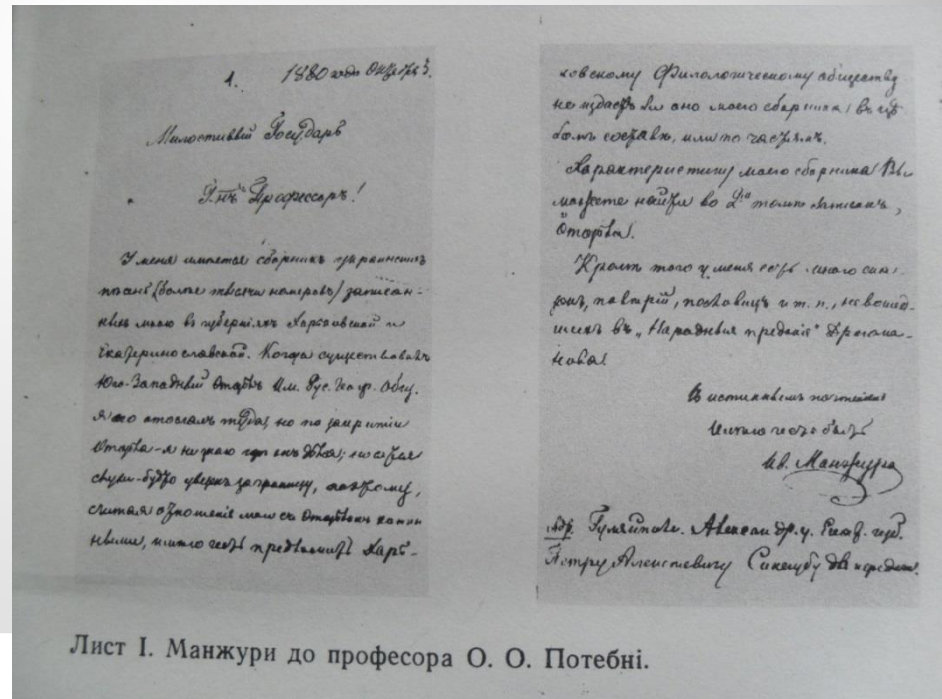 1. 1880 года Октября 3.
Милостивый Государь
Г-нъ Профессоръ!
У меня имеется сборникъ украинскихъ
песенъ (более тысячи номеровъ) записан-
ныхъ мною въ губернiяхъ Харьковской и
Екатеринославской. Когда существовалъ
Юго-Западный Отделъ Им. Рус. Геогр. Общ.
я его отослалъ туда, но по закрытiи
Отдела-я не знаю где онъ делся;
слухи-будто уверенъ заграницу, поэтому,
считая отношенiя мои съ Отделомъ кончен
ными, имею честь предложить Харь-
ковскому Филологическому обществу
не издастъ ли оно моего сборника въ це
ломъ составе, или по частямъ.
Характеристику моего сборника Вы
можете найти во 2мъ томе Записокъ,
Отдела.
Кроме того у меня есть много ска-
зокъ, повѣрiй, пословицъ и т. п., не вошед-
шихъ въ „Народныя преданiя" Драгома-
нова!
Съ истиннымъ почтенiемъ
Имею честь быть
Ив. Манжура
Адр. Гуляйполе. Александр. у. Екат. губ.
Петру Алексеевичу Синегубу для передачи.
Лист І. Манжури до професора О. О. Потебні.